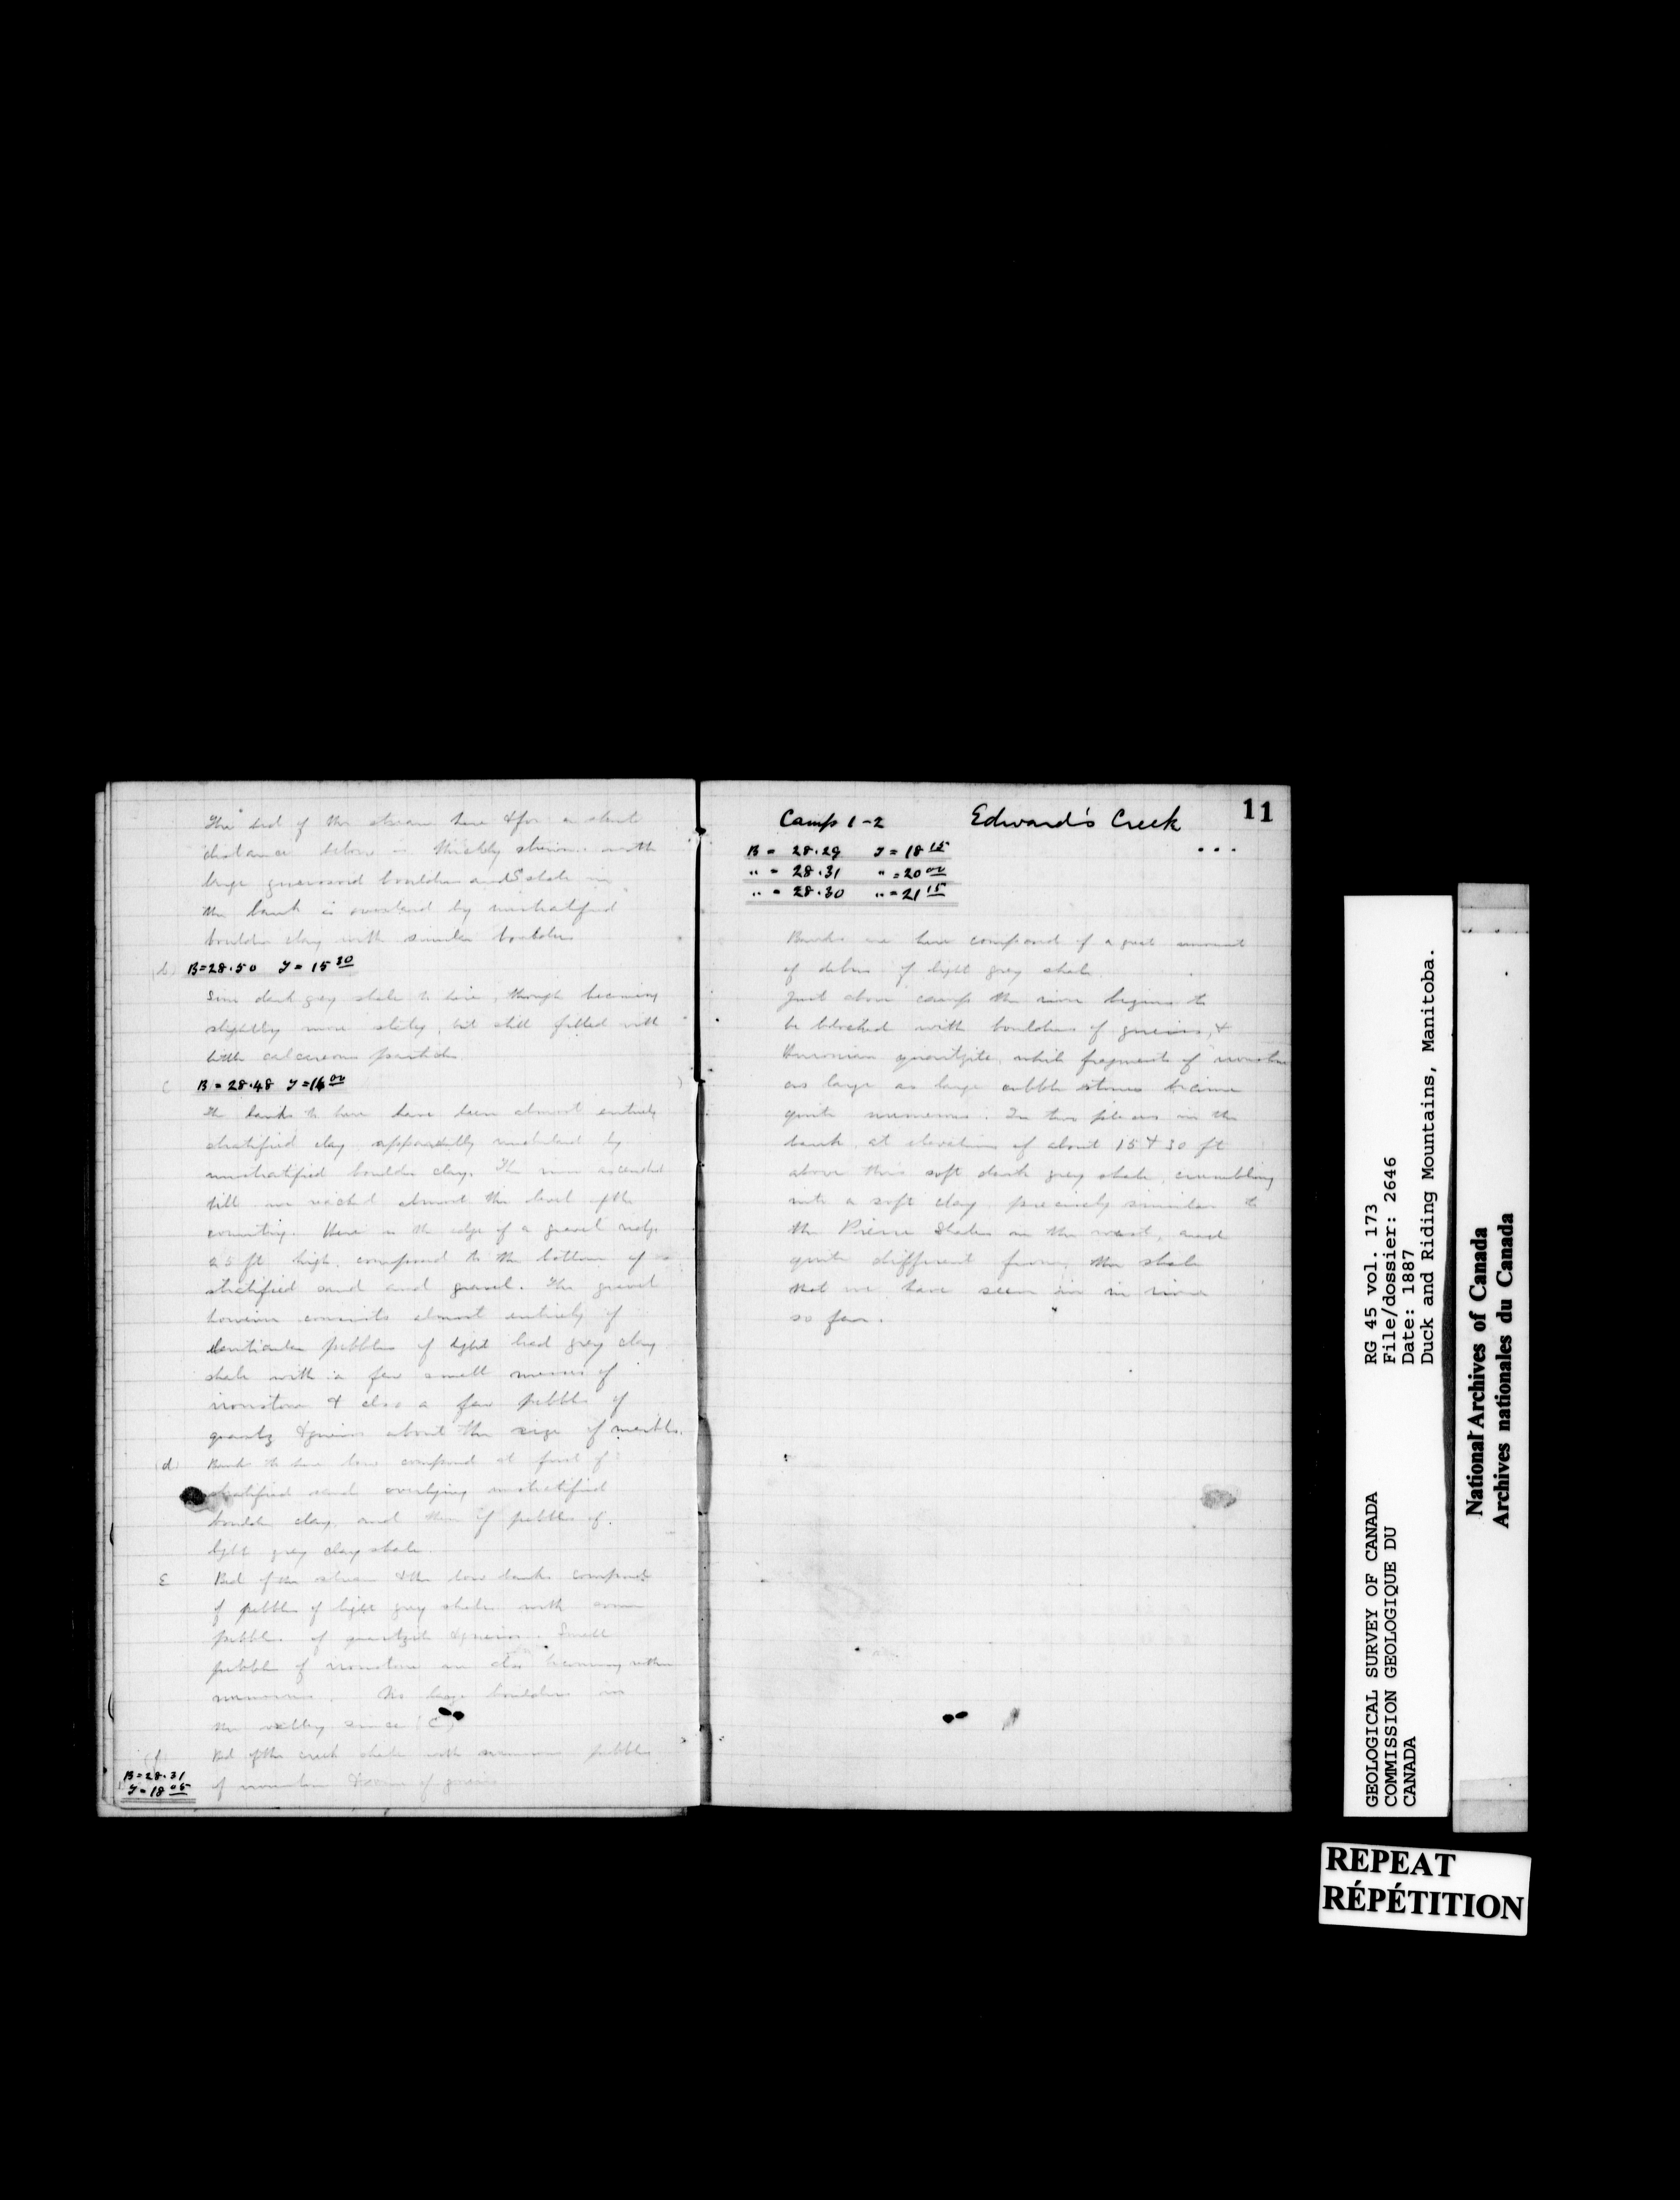 The bed of the stream here & for a short
distance below is thickly strewn with
large gneissoid boulders and Shale in
the bank is overlaid by unstratified
boulder clay with similar boulders
(b) B=28.50 T=15 30
Same dark grey shale to here, though becoming
slightly more slaty, but still filled with
little calcareous particles.
C B=28.48 T=16 00
The banks to here have been almost entirely
stratified clay apparently underlaid by
unstratified boulder clay. The river ascended
till we reached almost the level of the
country. Here is the edge of a gravel ridge
25 ft high, composed to the bottom of
stratified sand and gravel. The gravel
however consists almost entirely of
lenticular pebbles of light lead grey clay
shale with a few small masses of
ironstone & also a few pebbles of
quartz & gneiss about the size of marbles.
(d) Banks to here low composed at first of
stratified sand overlying unstratified
boulder clay, and then of pebbles of
light grey clay shale.
E Bed of the stream & the low banks composed
of pebbles of light grey shale with some
pebbles of quartzite & gneiss. Small
pebbles of ironstone are also becoming rather
numerous. No large boulders in
the valley since (C)
(f) Bed of the creek shale with numerous pebbles
of ironstone & some of gneiss
B=28.31
T=18 05
11
Camp 1-2 Edward's Creek
B = 28.29 T = 18 15
" = 28.31 " = 20 00
" = 28.30 " = 21 15
Banks are here composed of a great amount
of debris of light grey shale.
Just above camp the river begins to
be blocked with boulders of gneiss, &
Huronian quartzite, while fragments of ironstone
as large as large cobble stones become
quite numerous. In two places in the
bank, at elevations of about 15 & 30 ft
above this soft dark grey shale, crumbling
into a soft clay precisely similar to
the Pierre Shales in the west, and
quite different from the shale
that we have seen in river
so far.
GEOLOGICAL SURVEY OF CANADA
COMMISSION GEOLOGIQUE DU
CANADA
RG 45 vol. 173
File/dossier: 2646
Date: 1887
Duck and Riding Mountains, Manitoba.
National Archives of Canada
Archives nationales du Canada
REPEAT
RÉPÉTITION